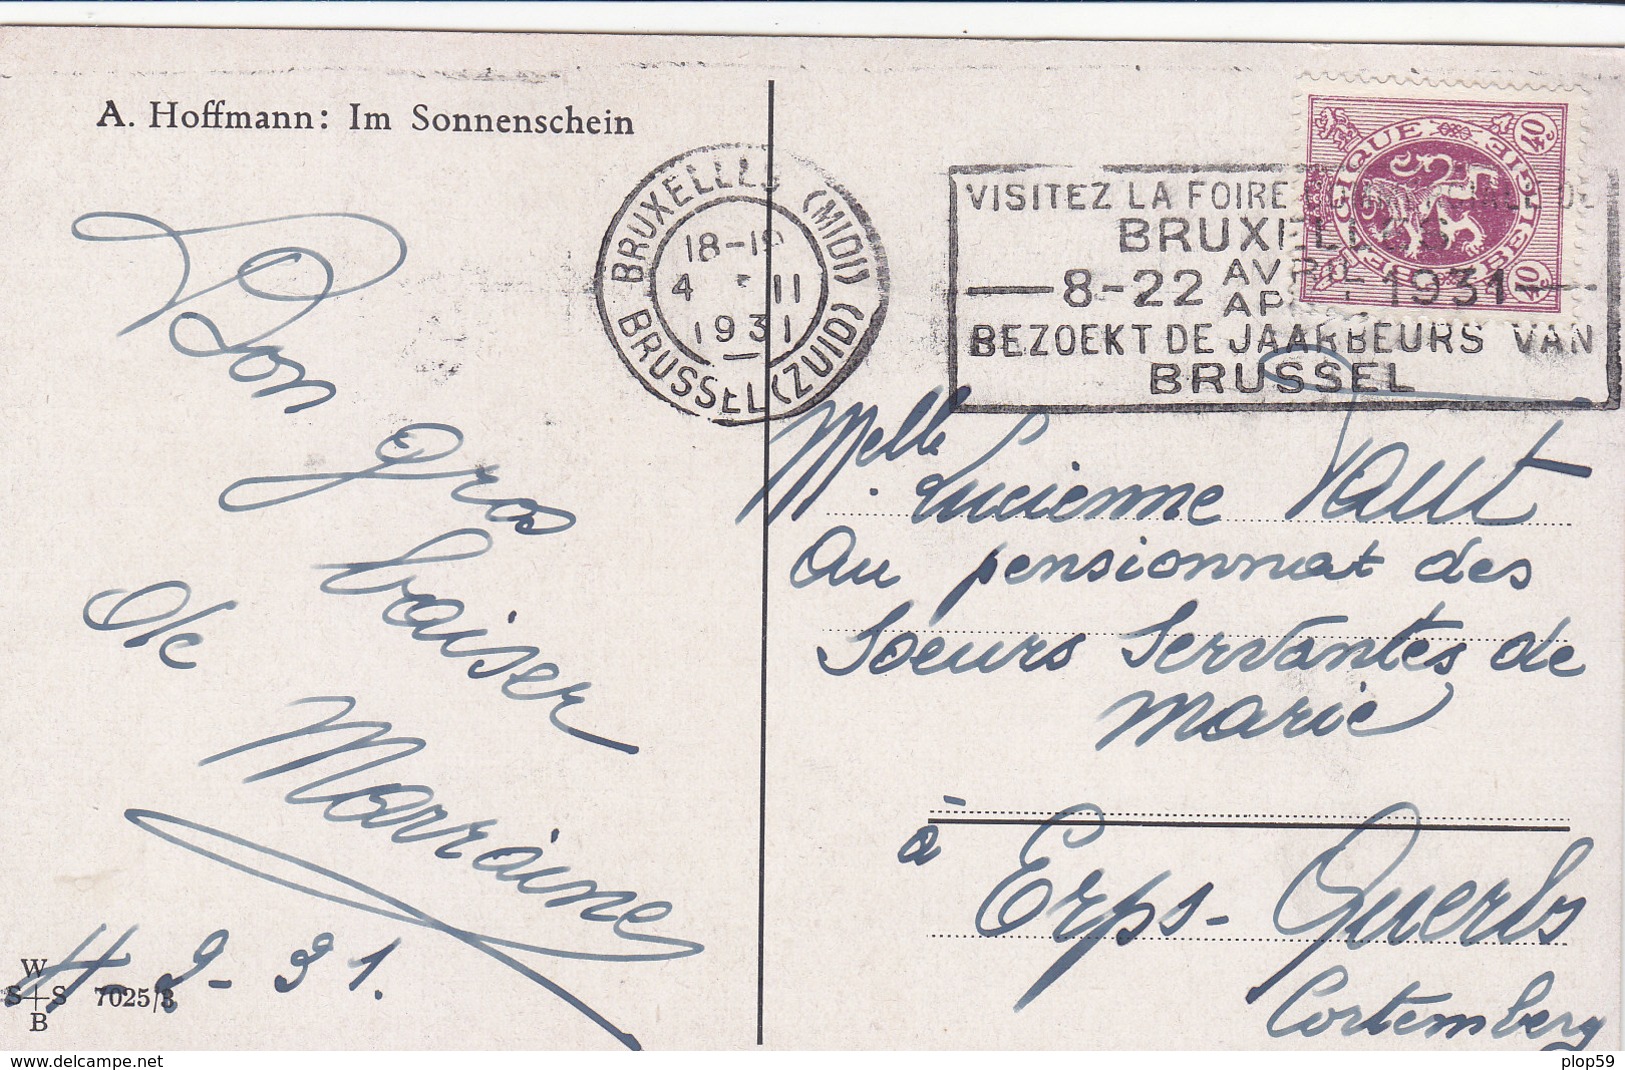 A. Hoffmann: Im Sonnenschein
BRUXELLES (MIDI)
18-19
4 II
1931
BRUSSEL (ZUID)
VISITEZ LA FOIRE COMMERCIALE DE
BRUXELLES
8-22 AVRIL APRIL 1931
BEZOEKT DE JAARBEURS VAN
BRUSSEL
BELGIQUE BELGIE
40c
40c
Bon gros
baiser
de
Marraine
4-2-31.
W
S S
B
7025/3
Melle. Lucienne
Au pensionnat des
Soeurs Servantes de
Marie
à
Erps-Querbs
Cortemberg
www.delcampe.net
plop59